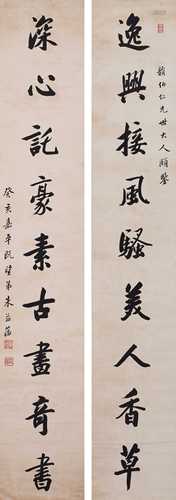 逸興接風騷美人香草
韻伯仁兄世大人雅鑒
深心託豪素古畫奇書
癸亥嘉平既望弟朱益藩